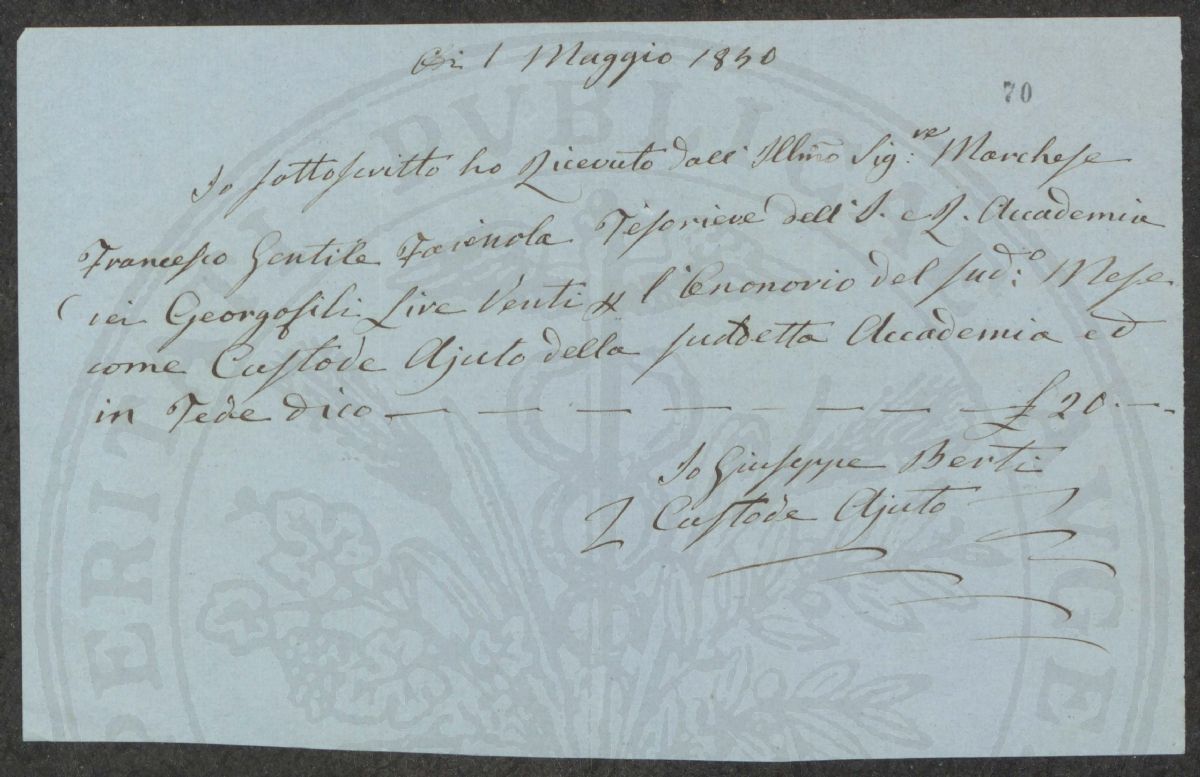 Di 1 Maggio 1850
70
Io sottoscritto ho Ricevuto dall' Illmo Sig:re Marchese
Francesco Gentile Farinola Tesoriere dell' I. e R. Accademia
dei Georgofili Lire Venti p l'Enonorio del sud:o Mese
come Custode Ajuto della suddetta Accademia ed
in Fede dico — — — — — — — £ 20.—
Io Giuseppe Berti
Custode Ajuto